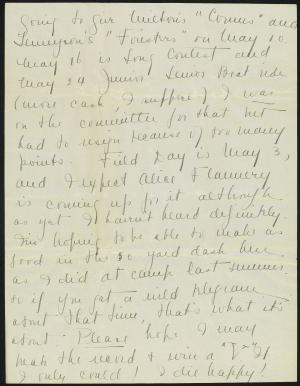 going to give Milton's "Comus" and
Tennyson's "Foresters" on May 10.
May 16 is Song Contest and
May 24 Junior Senior Boat ride
(more cash, I suppose). I was
on the committee for that but
had to resign because of too many
points. Field Day is May 3,
and I expect Alice Flannery
is coming up for it although
as yet I haven't heard definitely.
I'm hoping to be able to make as
good in the 50 yard dash here
as I did at camp last summer
so if you get a wild telegram
about that time, that's what it's
about. Please hope I may
make the record & win a "V" If
I only could! I die happy!